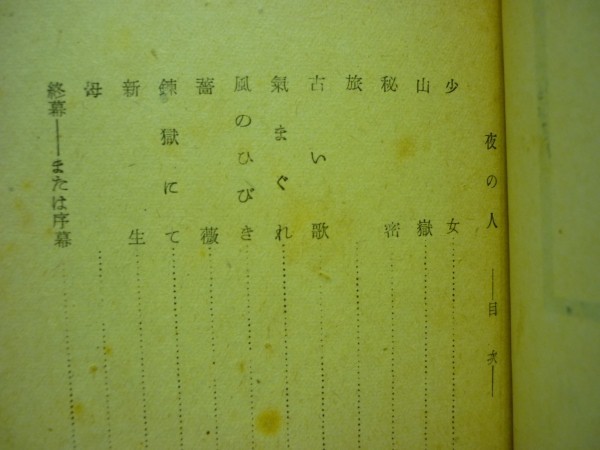 夜の人 ――目次――
少女
山嶽
秘密
旅
古い歌
氣まぐれ
風のひびき
薔薇
錬獄にて
新生
母
終幕――または序幕